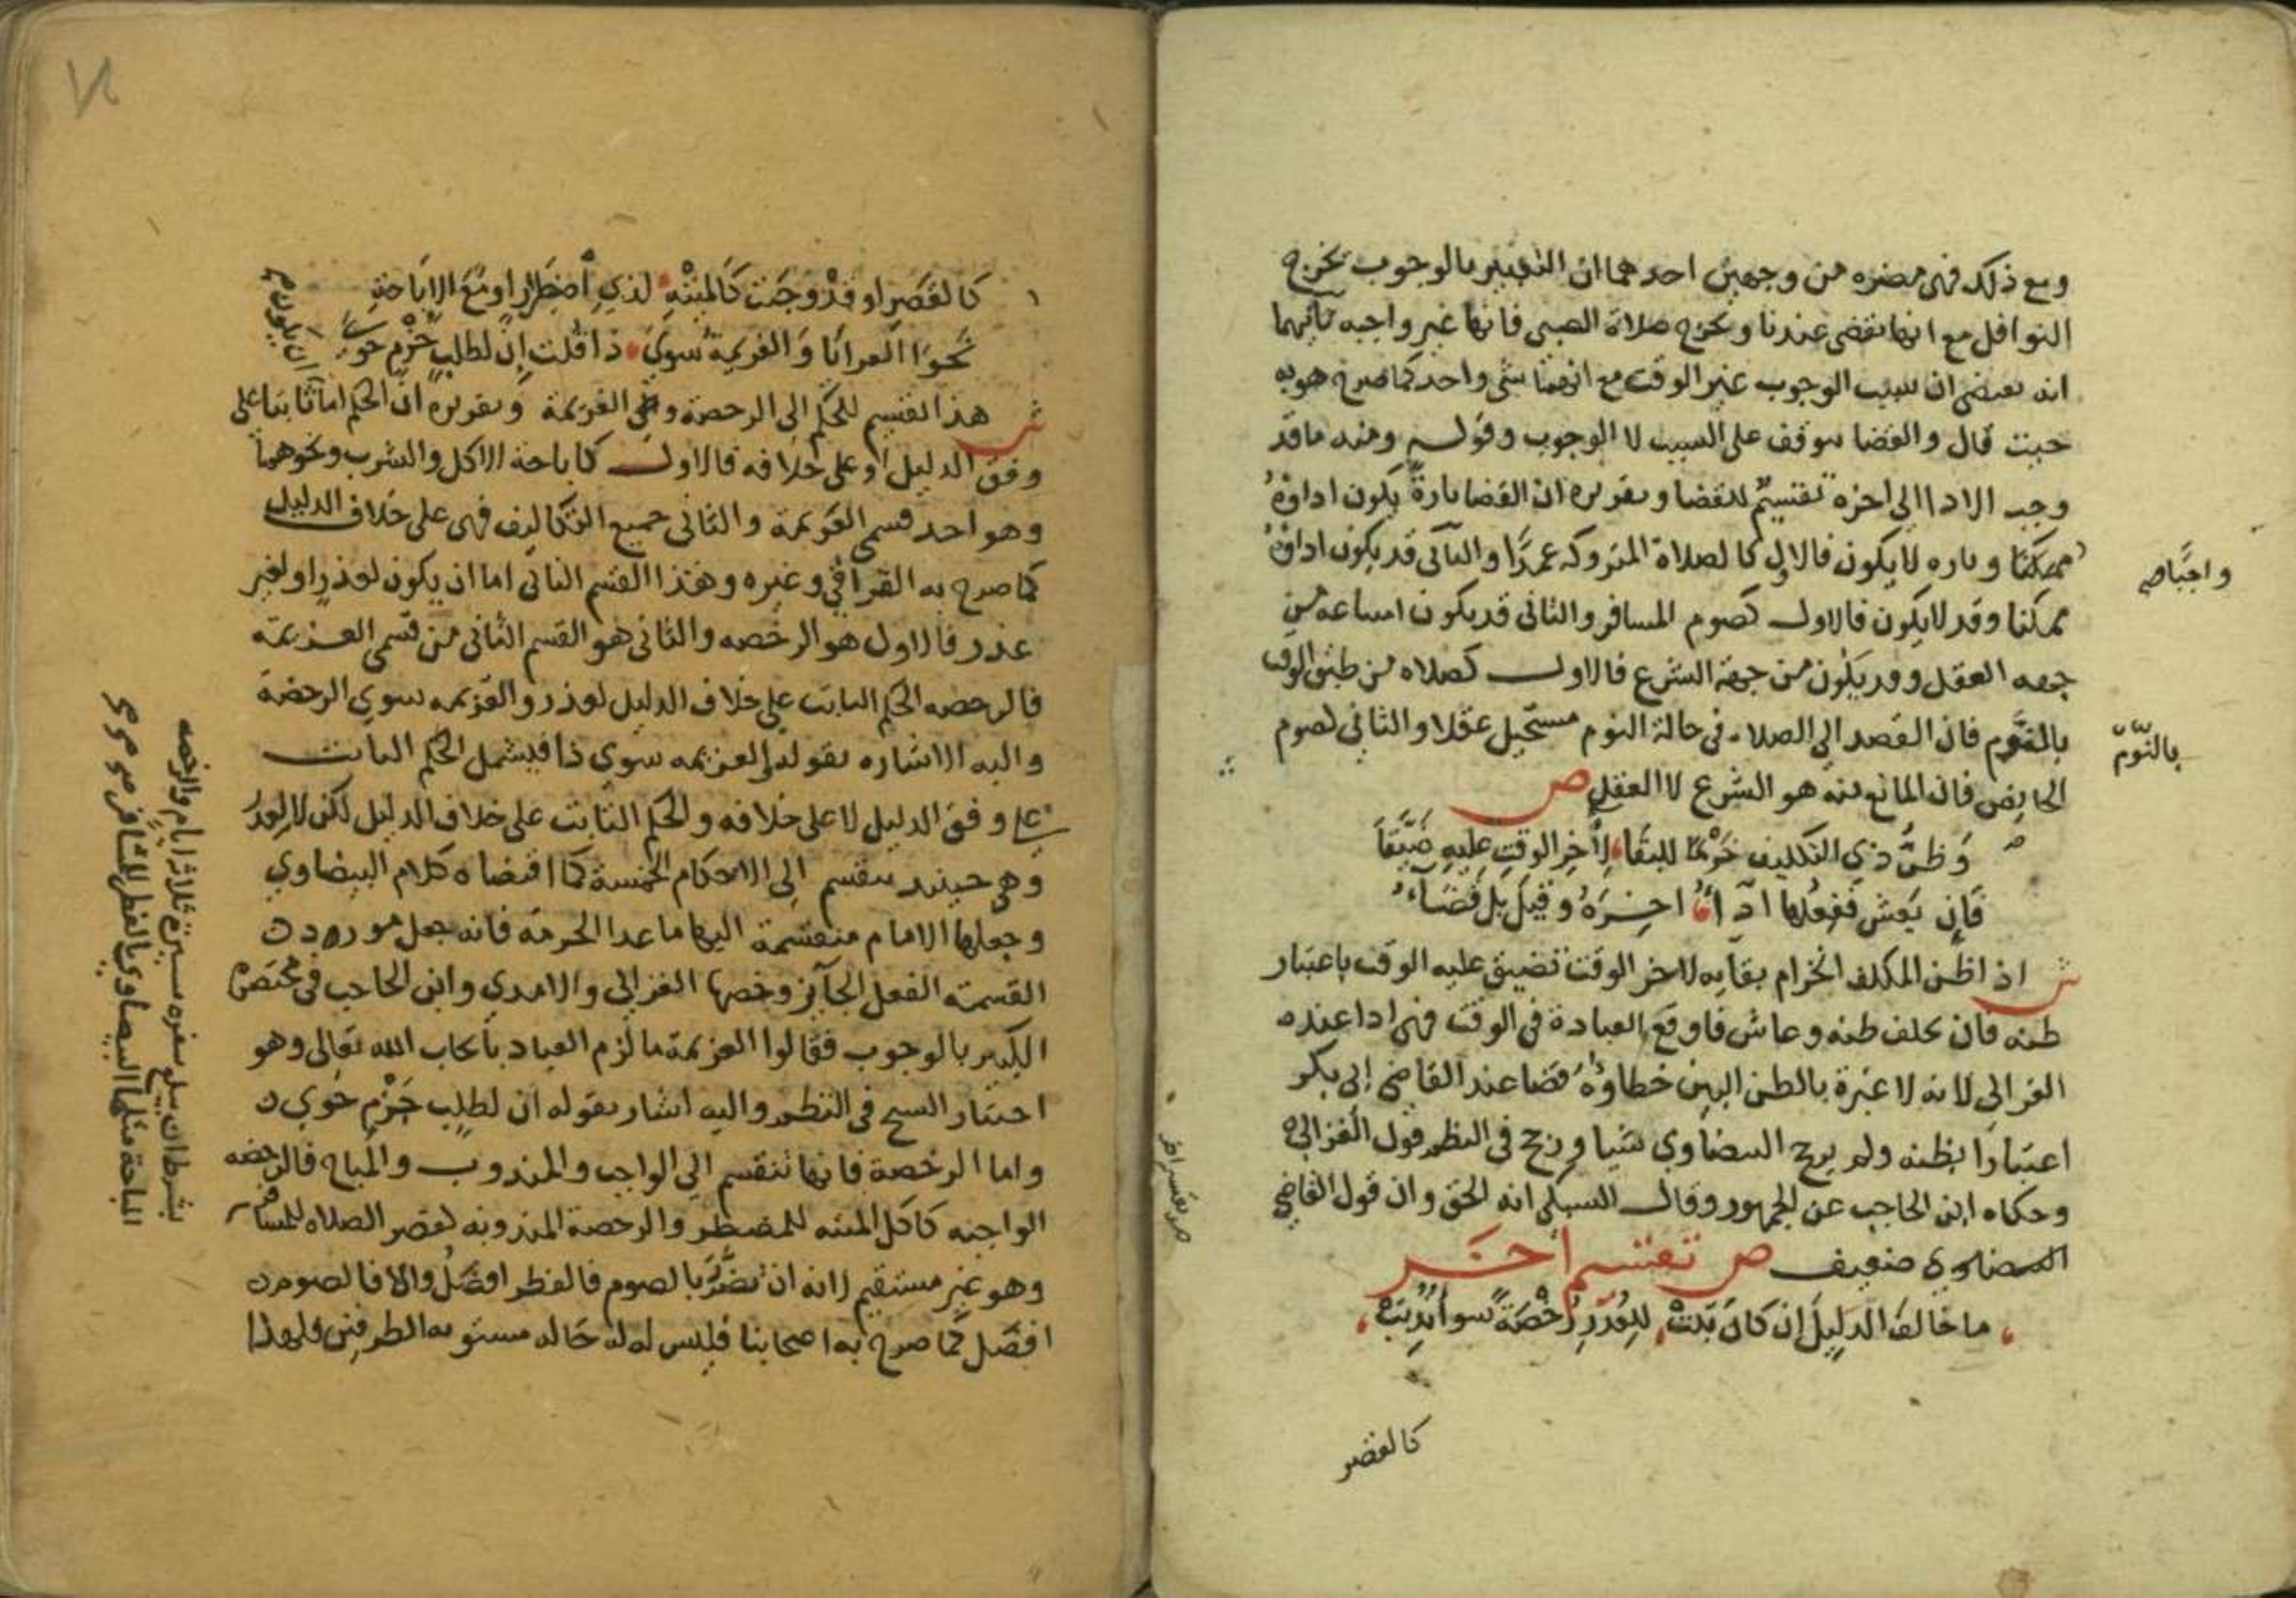 ومع ذلك فهي مضره من وجهين احدهما ان التعبير بالوجوب يخرج
النوافل مع انها تقضى عندنا ويخرج صلاة الصبي فانها غير واجبه ثانيهما
انه يقتضي ان سبب الوجوب غير الوقت مع انهما شي واحد كما صرح هو به
حيث قال والقضا يتوقف على السبب لا الوجوب وقوله ومنه ما قد
وجب الادا الى اخره تقسيم للقضا وتقريره ان القضا تارة يكون اداؤه
ممكنا وتاره لا يكون فالاول كالصلاة المتروكه عمدا والثاني قد يكون اداؤه
ممكنا وقد لا يكون فالاول كصوم المسافر والثاني قد يكون امتناعه من
جهه العقل وقد يكون من جهة الشرع فالاول كصلاه من طبق الوقت
بالنوم فان القصد الى الصلاه في حالة النوم مستحيل عقلا والثاني كصوم
الحايض فان المانع منه هو الشرع لا العقل ص
وَظنُّ ذي التكليف خَرْمًا للبقا لِأخِر الوقتِ عليهِ ضَيَّقَا
فَإِن يَعش فَفِعلها ادّاءُ اخِرَهُ وقيلَ بل قَضَاءُ
ش اذا ظن المكلف انخرام بقايه لاخر الوقت تضيق عليه الوقت باعتبار
ظنه فان تخلف ظنه وعاش فاوقع العبادة في الوقت فهي ادا عند
الغزالي لانه لا عبرة بالظن البين خطاؤه قضا عند القاضي ابي بكر
اعتبارا بظنه ولم يرجح البيضاوي شيا ورجح في النظم قول الغزالي
وحكاه ابن الحاجب عن الجمهور وقال السبكي انه الحق وان قول القاضي
ضعيف ص تقسيم أخر
ما خالفَ الدَليلَ إن كانَ ثبتْ للعُذرِ رُخْصَةً سوا نُدِبَتْ
كالقصر
واجبا صح
بالنّوم
كالقصرِ او قدْ وجبَت كالميتةِ لذي اضطرارٍ او مَعَ الإباحةِ
نَحوَ العرايَا وَالعزيمةُ سوي ذا قلت إن لطلبٍ جَزْمٍ حوي
ش هذا تقسيم للحكم الى الرخصة والى العزيمة وتقريره ان الحكم اما ثابتا على
وفق الدليل او على خلافه فالاول كاباحة الاكل والشرب ونحوهما
وهو احد قسمي العزيمة والثاني جميع التكاليف فهي على خلاف الدليل
كما صرح به القرافي وغيره وهذا القسم الثاني اما ان يكون لعذر او لغير
عذر فالاول هو الرخصه والثاني هو القسم الثاني من قسمي العزيمة
فالرخصه الحكم الثابت على خلاف الدليل لعذر والعزيمه سوي الرخصة
واليه الاشاره بقوله والعزيمه سوي ذا فيشمل الحكم الثابت
على وفق الدليل لا على خلافه والحكم الثابت على خلاف الدليل لكن لا لعذر
وهي حينيذ تنقسم الى الاحكام الخمسة كما اقتضاه كلام البيضاوي
وجعلها الامام منقسمة اليها ما عدا الحرمة فانه جعل مورد
القسمة الفعل الجايز وخصها الغزالي والامدي وابن الحاجب في مختصره
الكبير بالوجوب فقالوا العزيمة ما لزم العباد بايجاب الله تعالى وهو
اختيار الشيخ في النظم واليه اشار بقوله ان لطلب جَزْمٍ حوي
واما الرخصة فانها تنقسم الى الواجب والمندوب والمباح فالرخصه
الواجبه كاكل الميته للمضطر والرخصة المندوبه كقصر الصلاه للمسافر
بشرط ان يبلغ سفره مسيرة ثلاثة ايام والرخصه
المباحة مثلها البيضاوي بالفطر للمسافر
وهو غير مستقيم لانه ان تضرر بالصوم فالفطر افضل والا فالصوم
افضل كما صرح به اصحابنا فليس له حاله مستويه الطرفين فلهذا